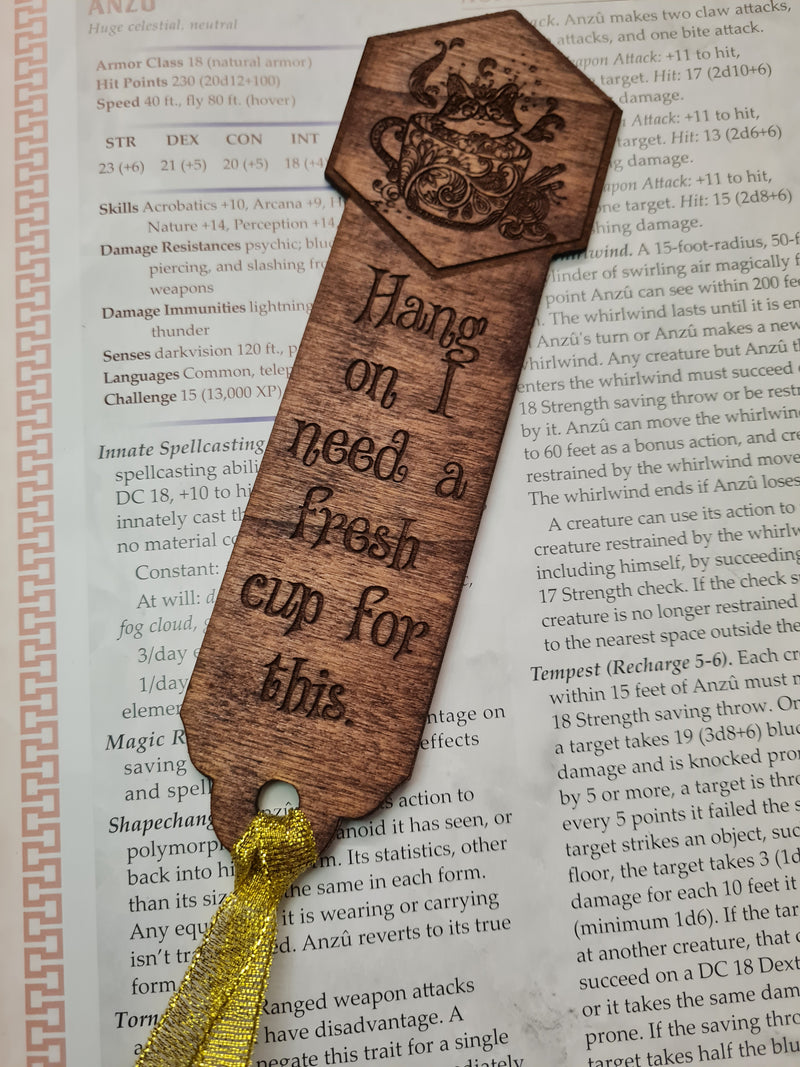 ANZÛ
Huge celestial, neutral
Armor Class 18 (natural armor)
Hit Points 230 (20d12+100)
Speed 40 ft., fly 80 ft. (hover)
STR DEX CON INT
23 (+6) 21 (+5) 20 (+5) 18 (+4)
Skills Acrobatics +10, Arcana +9,
Nature +14, Perception +14,
Damage Resistances psychic;
piercing, and slashing
weapons
Damage Immunities lightning,
thunder
Senses darkvision 120 ft.,
Languages Common,
Challenge 15 (13,000 XP)
Innate Spellcasting
spellcasting
DC 18, +10 to
innately cast
no material
Constant:
At will:
fog cloud,
3/day
1/day
Magic
saving
and
effects
action to
anoid it has seen, or
back into
Its statistics, other
than its
the same in each form.
Any
it is wearing or carrying
isn't
Anzû reverts to its true
form.
Ranged weapon attacks
have disadvantage. A
negate this trait for a single
Hang
on I
need a
fresh
cup for
this.
Anzû makes two claw attacks,
attacks, and one bite attack.
Attack: +11 to hit,
target. Hit: 17 (2d10+6)
damage.
Attack: +11 to hit,
target. Hit: 13 (2d6+6)
damage.
Attack: +11 to hit,
one target. Hit: 15 (2d8+6)
damage.
A 15-foot-radius,
of swirling air magically
point Anzû can see within 200
The whirlwind lasts until it is
Anzû's turn or Anzû makes a new
whirlwind. Any creature but Anzû
enters the whirlwind must succeed
18 Strength saving throw or be
by it. Anzû can move the
to 60 feet as a bonus action, and
restrained by the whirlwind
The whirlwind ends if Anzû loses
A creature can use its action to
creature restrained by the
including himself, by succeeding
17 Strength check. If the check
creature is no longer restrained
to the nearest space outside the
Tempest (Recharge 5-6). Each
within 15 feet of Anzû must
18 Strength saving throw. On
a target takes 19 (3d8+6)
damage and is knocked
by 5 or more, a target is
every 5 points it failed the
target strikes an object,
floor, the target takes 3
damage for each 10 feet it
(minimum 1d6). If the
at another creature, that
succeed on a DC 18
or it takes the same
prone. If the saving
target takes half the